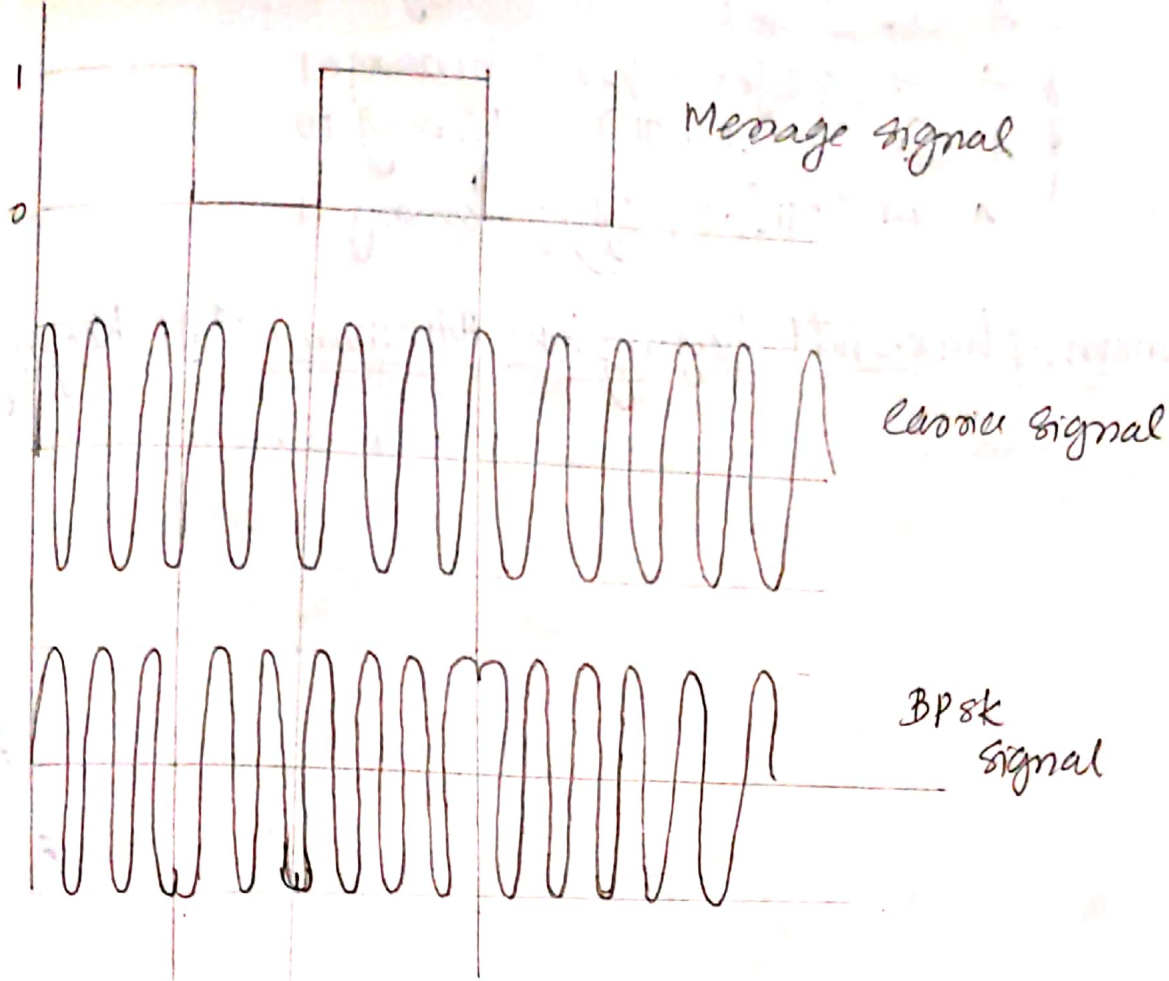 1
Message signal
0
Carrier signal
BPSK
signal